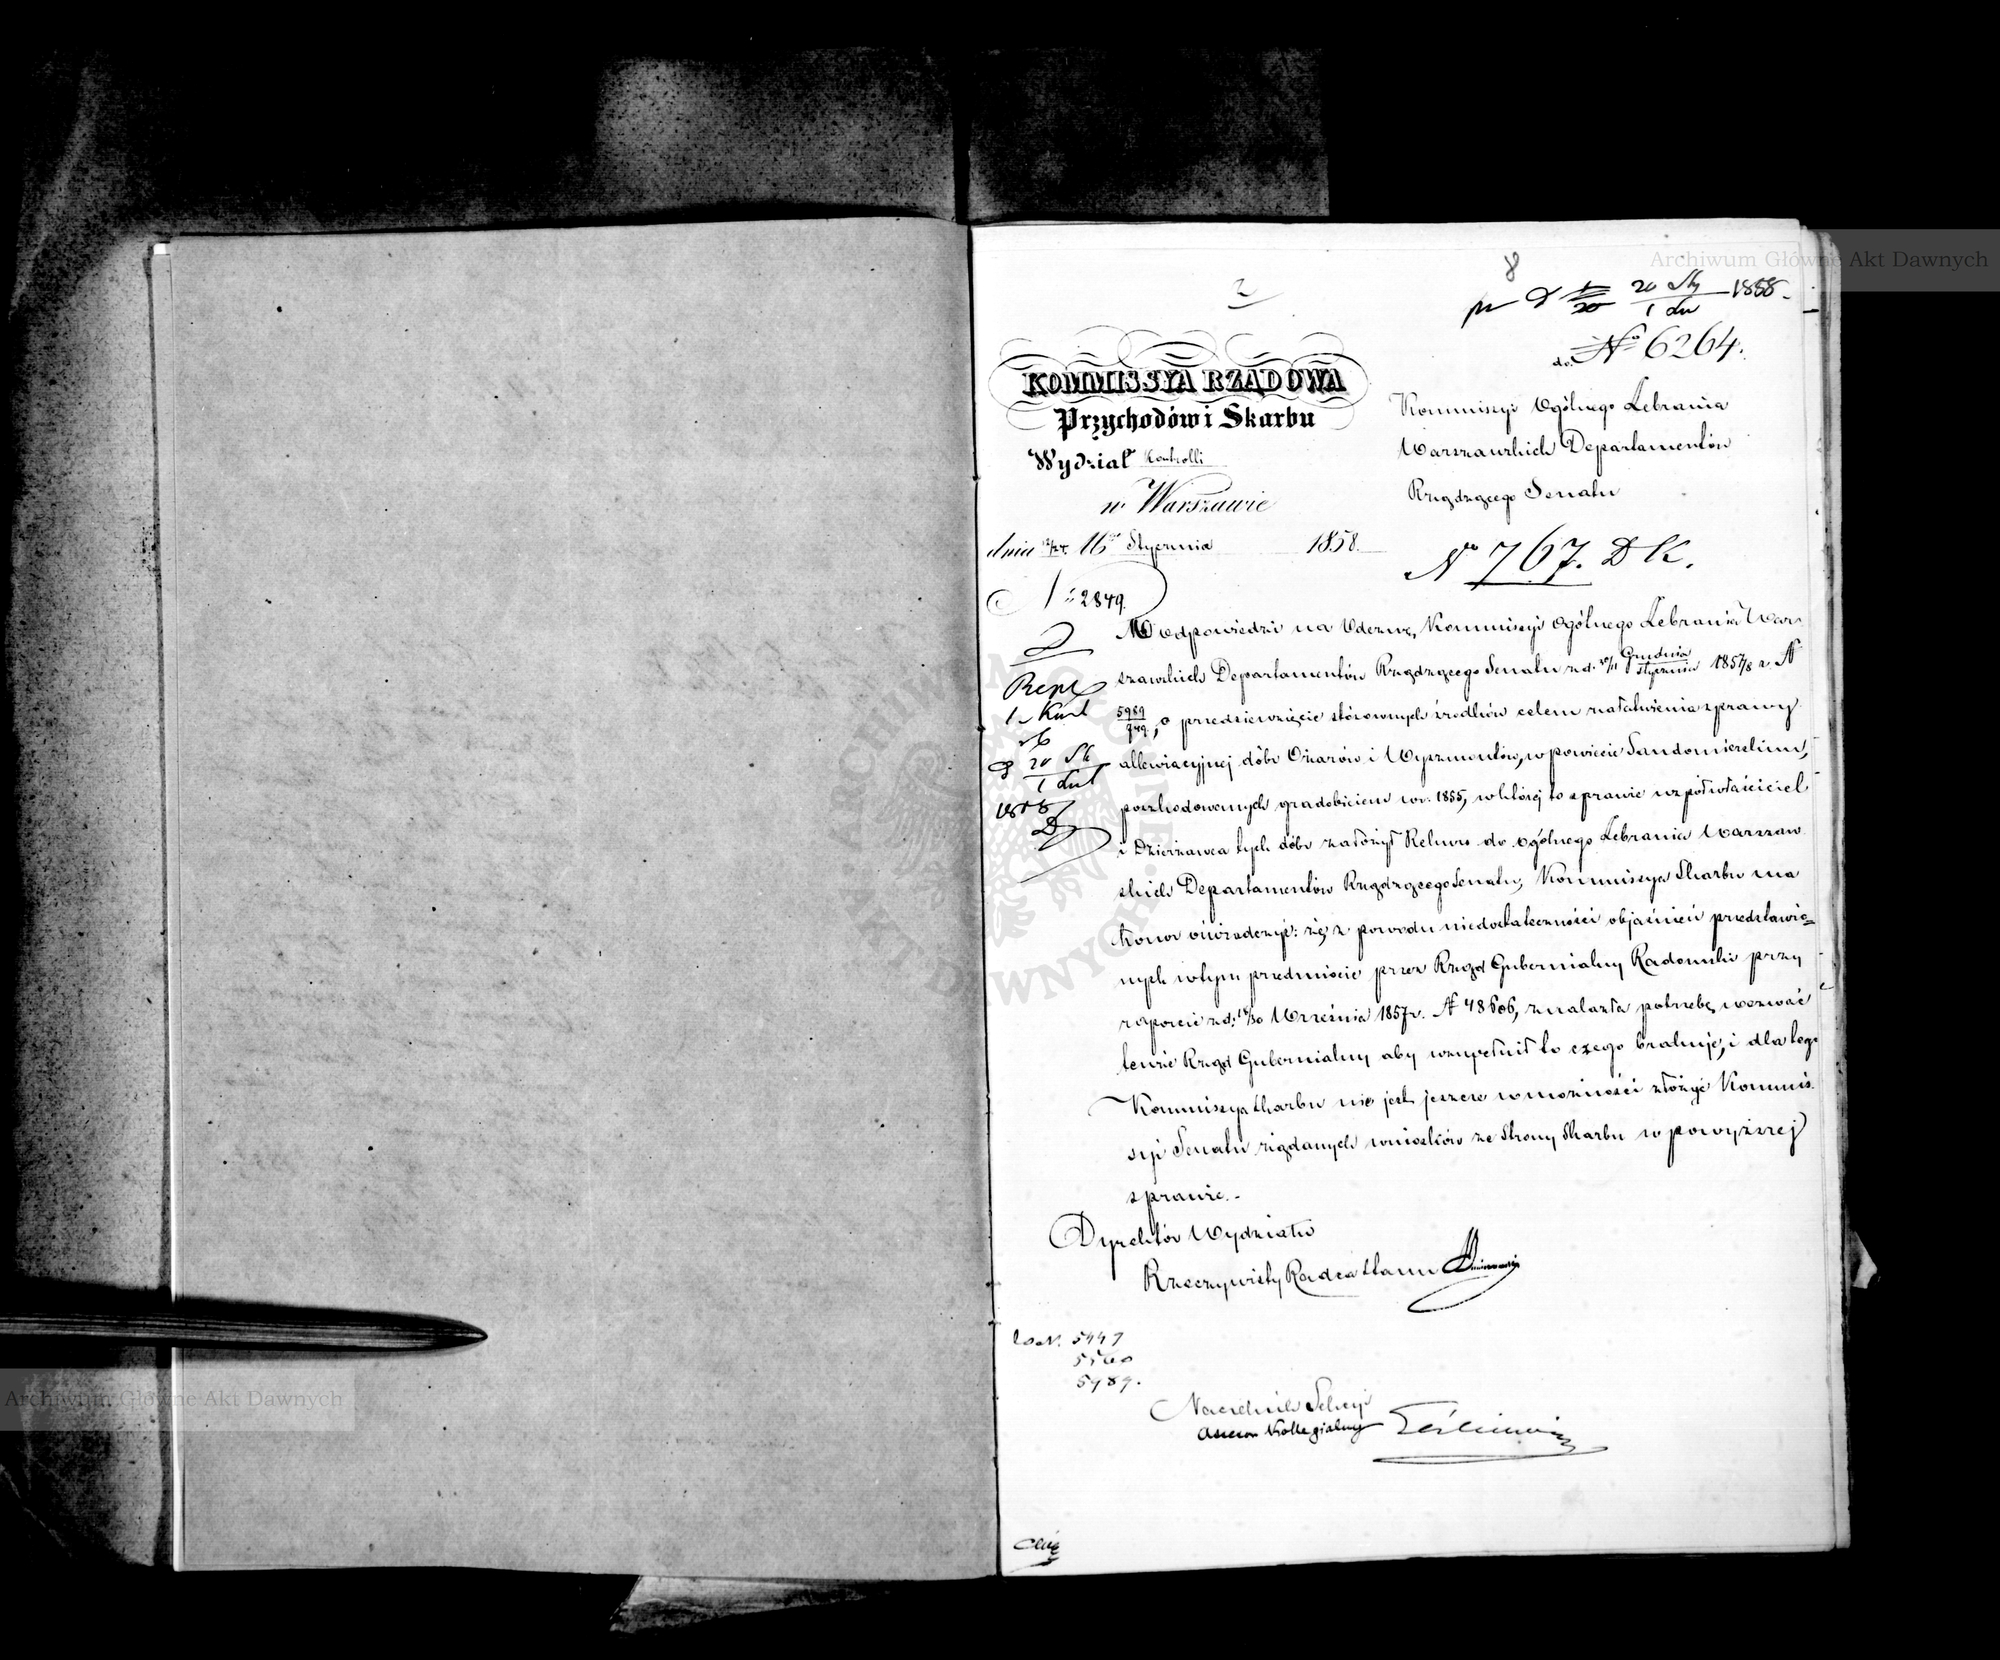 Archiwum Główne Akt Dawnych
8
2
20 Sty 1858.
1 Lu
do № 6264.
KOMMISSYA RZĄDOWA
Przychodów i Skarbu
Wydział Kontrolli
w Warszawie
dnia 16 Stycznia 1858.
N 2849.
Kommisyi Ogólnego Zebrania
Warszawskich Departamentów
Rządzącego Senatu
No 767. D K.
W odpowiedzi na Odezwę, Kommissyi Ogólnego Zebrania War-
szawskich Departamentów Rządzącego Senatu z d. 30/11 Grudnia/Stycznia 1857/8 r. N
5989/749, o przedsięwzięcie stósownych środków celem załatwienia sprawy
allewiacyjnej dóbr Ożarów i Wyszmontów, w powiecie Sandomierskim,
poszkodowanych gradobiciem w r. 1855, w której to sprawie współwłaściciel
i Dzierżawca tych dóbr założył Rekurs do Ogólnego Zebrania Warszaw-
skich Departamentów Rządzącego Senatu, Kommissya Skarbu ma
honor oświadczyć: że, z powodu niedostateczności objaśnień przedstawio-
nych w tym przedmiocie przez Rząd Gubernialny Radomski przy
raporcie z d. 18/30 Września 1857 r. N 48606, znalazła potrzebę wezwać
tenże Rząd Gubernialny aby uzupełnił to czego brakuje, i dla tego
Kommissya Skarbu nie jest jeszcze w możności złożyć Kommis-
syi Senatu żądanych wniosków ze strony Skarbu w powyższej
sprawie.-
Dyrektor Wydziału
Rzeczywisty Radca Stanu
20 St
1 Lut
1858
5447
5560
5989.
Naczelnik Sekcyi
Assesor Kollegialny
Archiwum Główne Akt Dawnych
ARCHIWUM GŁÓWNE AKT DAWNYCH